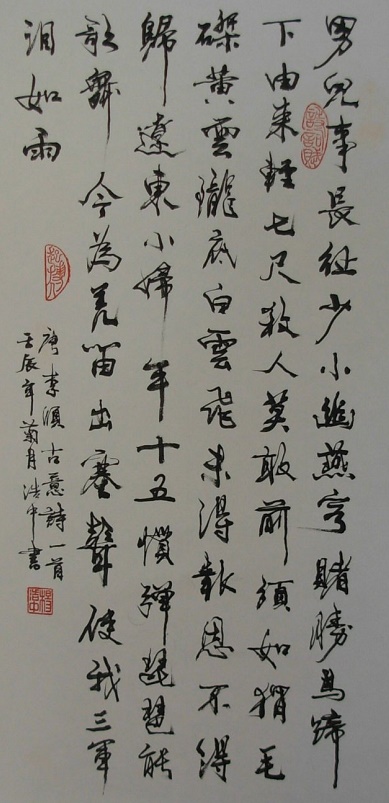 男兒事長征少小幽燕客賭勝馬蹄
下由來輕七尺殺人莫敢前須如猬毛
磔黃雲隴底白雲飛未得報恩不得
歸遼東小婦年十五慣彈琵琶能
歌舞今為羌笛出塞聲使我三軍
泪如雨
唐李頎古意詩一首
壬辰年菊月浩中書